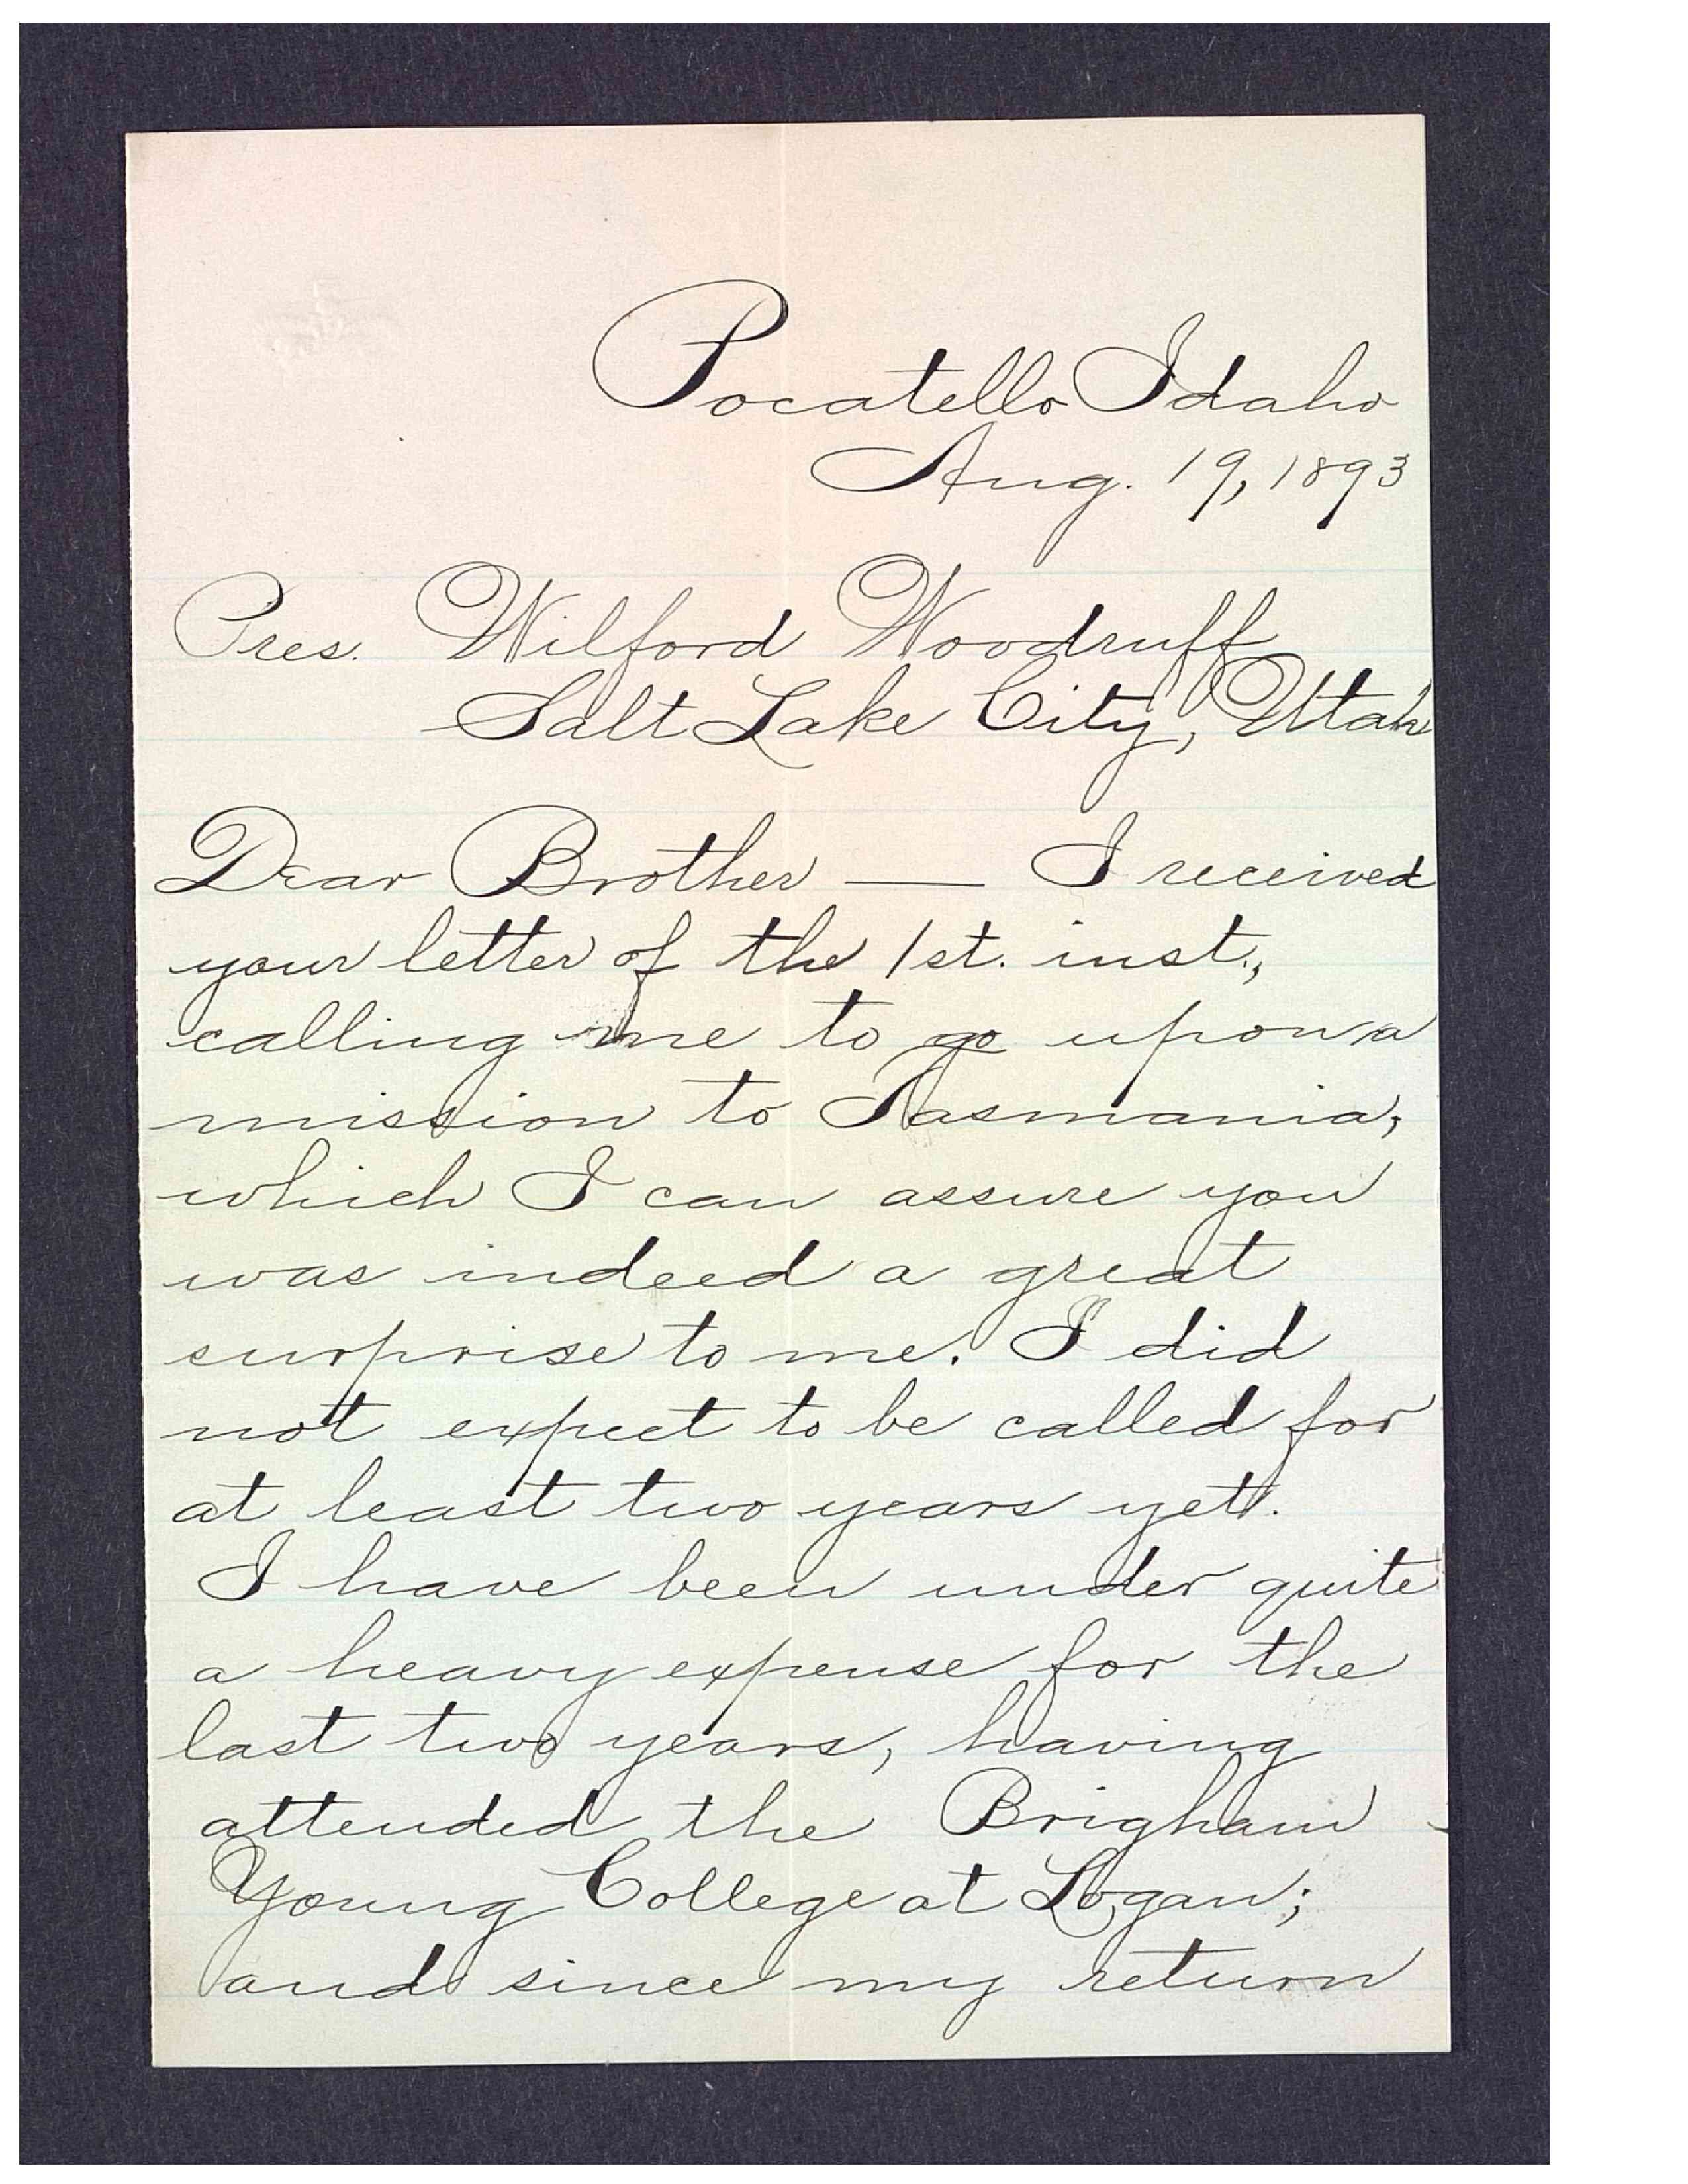 Pocatello Idaho
Aug. 19, 1893
Pres. Wilford Woodruff
Salt Lake City, Utah
Dear Brother — I received
your letter of the 1st. inst.,
calling me to go upon a
mission to Tasmania,
which I can assure you
was indeed a great
surprise to me. I did
not expect to be called for
at least two years yet.
I have been under quite
a heavy expense for the
last two years, having
attended the Brigham
Young College at Logan;
and since my return